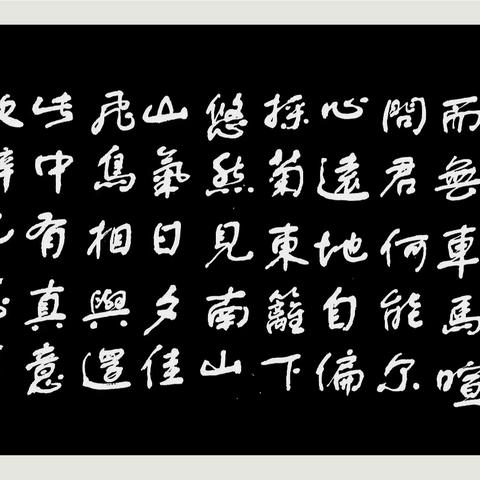 而無車馬喧
問君何能尔
心遠地自偏
採菊東籬下
悠然見南山
山氣日夕佳
飛鳥相與還
此中有真意